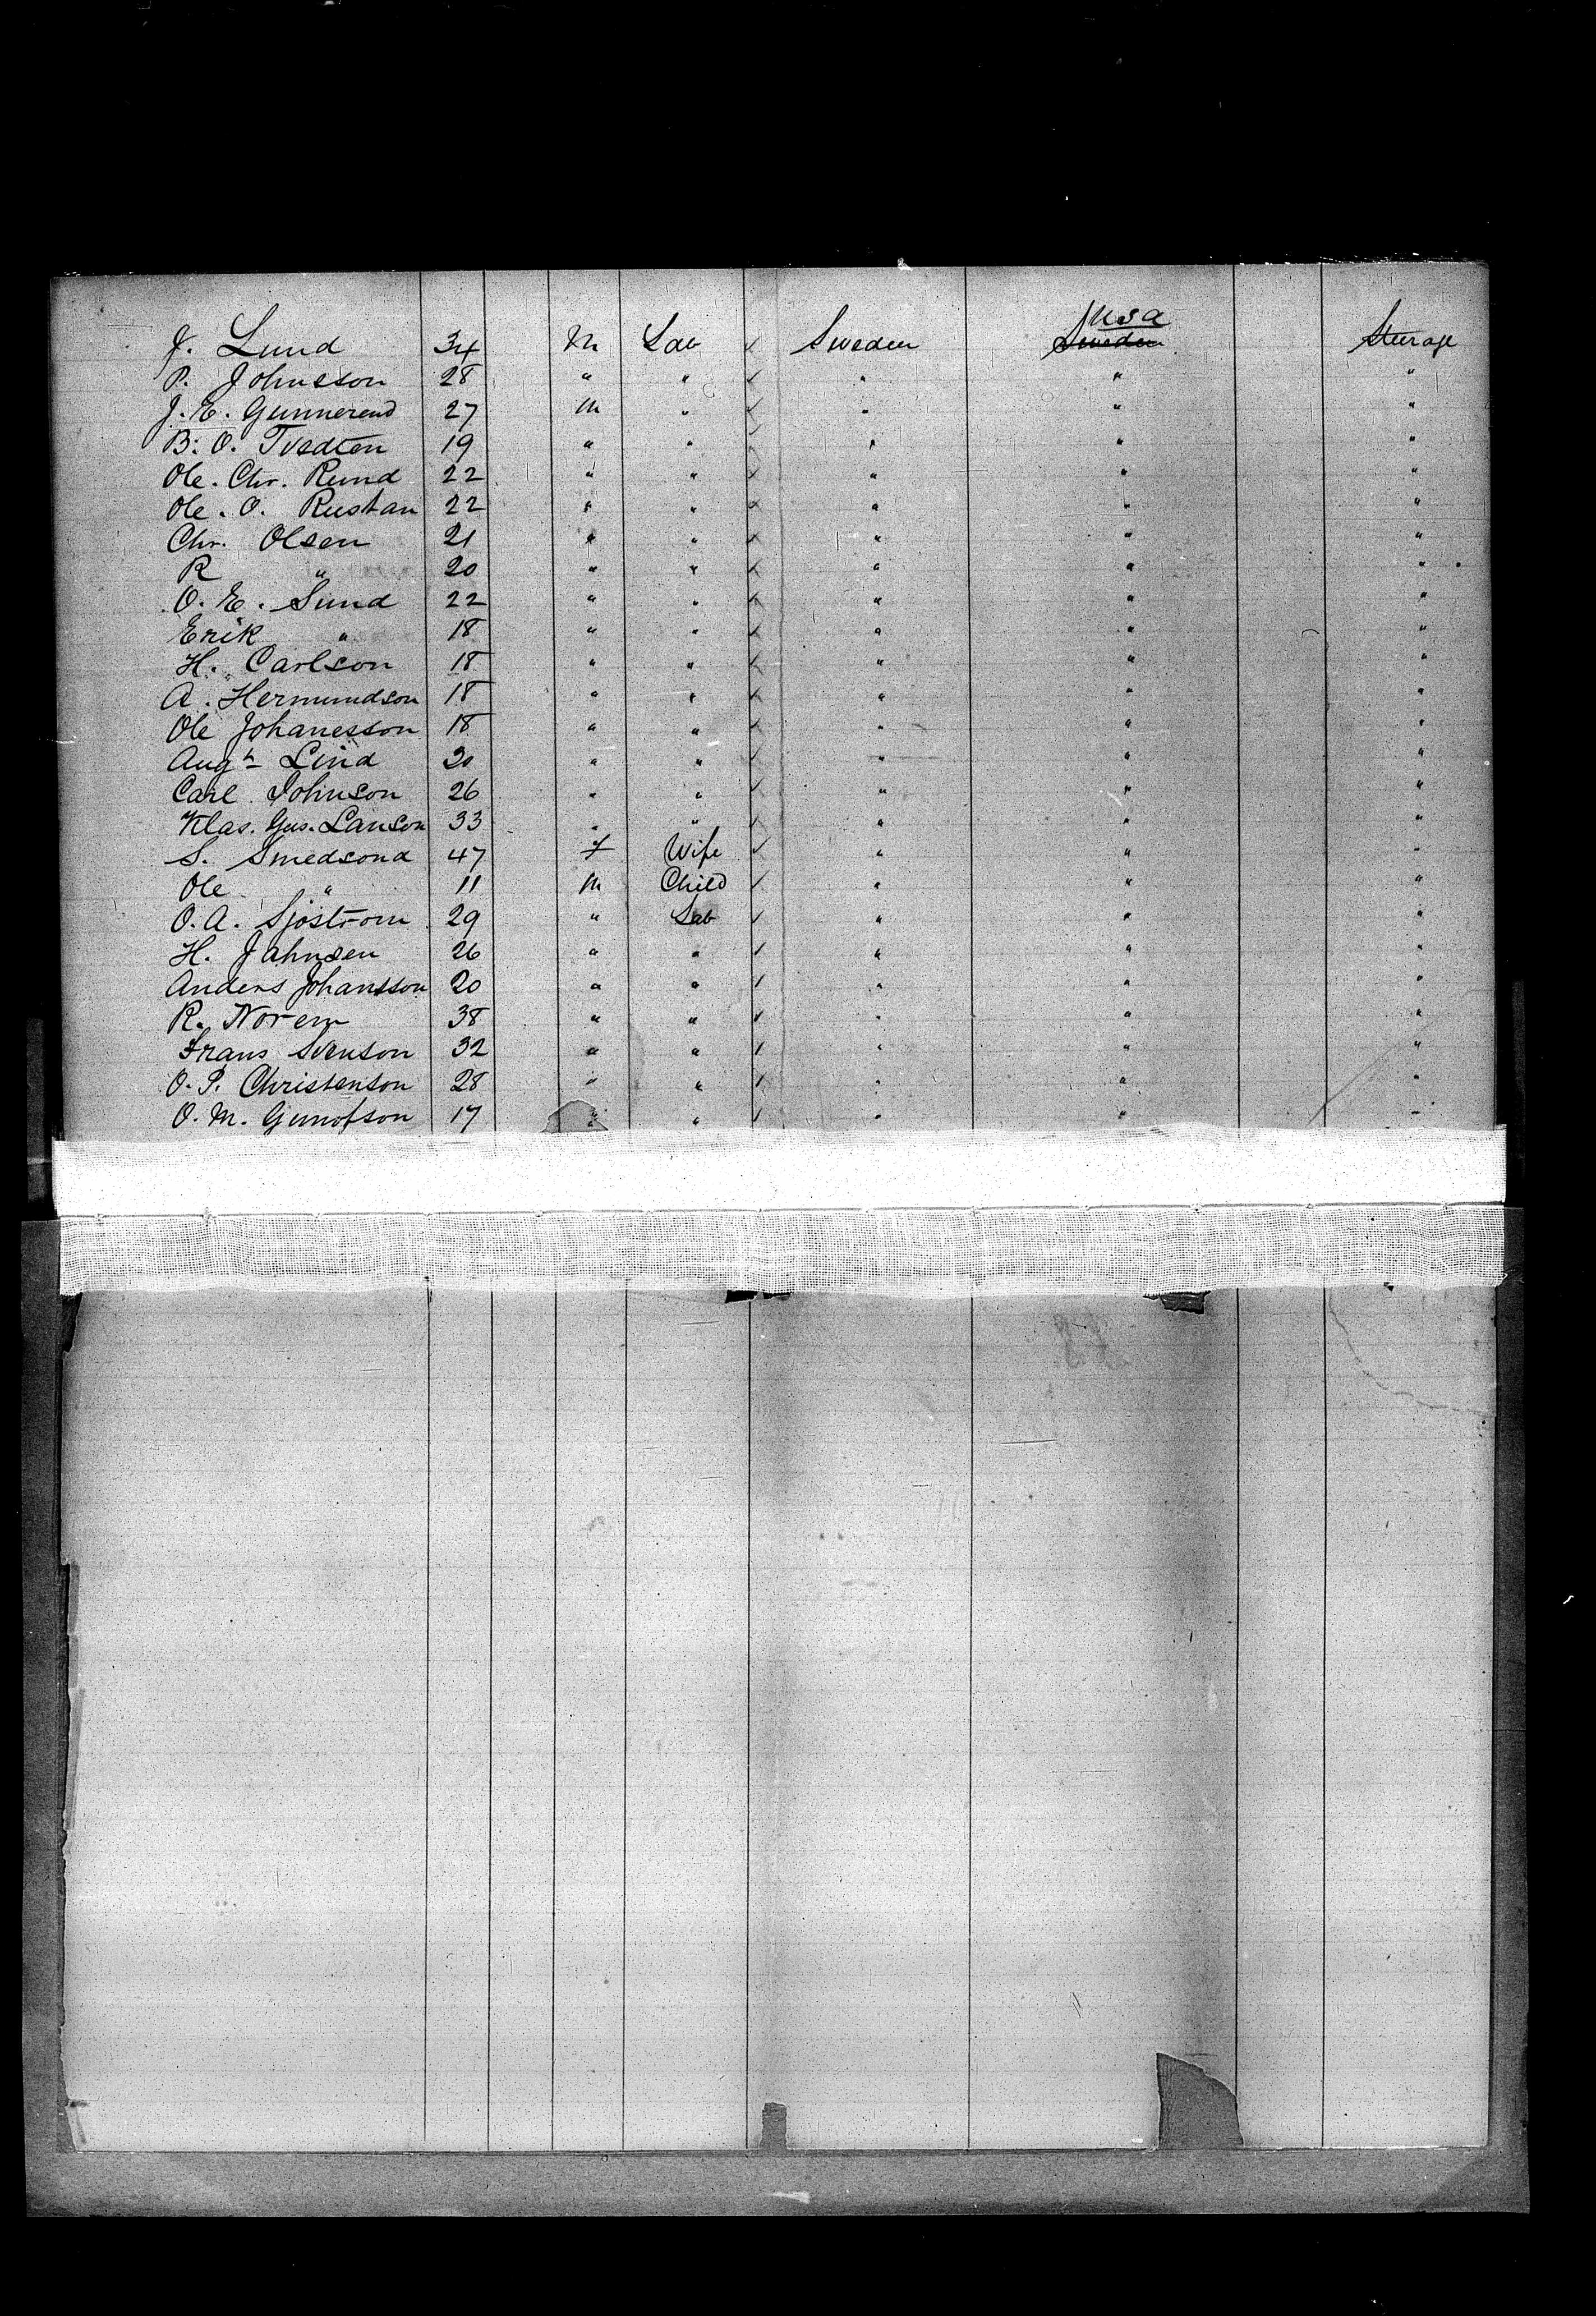 J. Lund 34 M Lab ✓ Sweden USA ~~Sweden~~ Steerage
P. Johnsson 28 " " ✓ " " "
J. E. Gunnerend 27 M " ✓ " " "
B. O. Tvedten 19 " " ✓ " " "
Ole. Chr. Rund 22 " " ✓ " " "
Ole. O. Rustan 22 " " ✓ " " "
Chr. Olsen 21 " " ✓ " " "
R " 20 " " ✓ " " "
O. E. Sund 22 " " ✓ " " "
Erik " 18 " " ✓ " " "
H. Carlson 18 " " ✓ " " "
A. Hermundson 18 " " ✓ " " "
Ole Johanesson 18 " " ✓ " " "
Augt Lind 20 " " ✓ " " "
Carl Johnson 26 " " ✓ " " "
Klas. Gus. Lanson 33 " " ✓ " " "
S. Smedsond 47 f Wife ✓ " " "
Ole " 11 M Child ✓ " " "
O. A. Sjöstrom 29 " Lab ✓ " " "
H. Jahnsen 26 " " ✓ " " "
Anders Johansson 20 " " ✓ " " "
R. Norem 38 " " ✓ " " "
Frans Svenson 32 " " ✓ " " "
O. P. Christenson 28 " " ✓ " " "
O. M. Gunofson 17 " " ✓ " " "